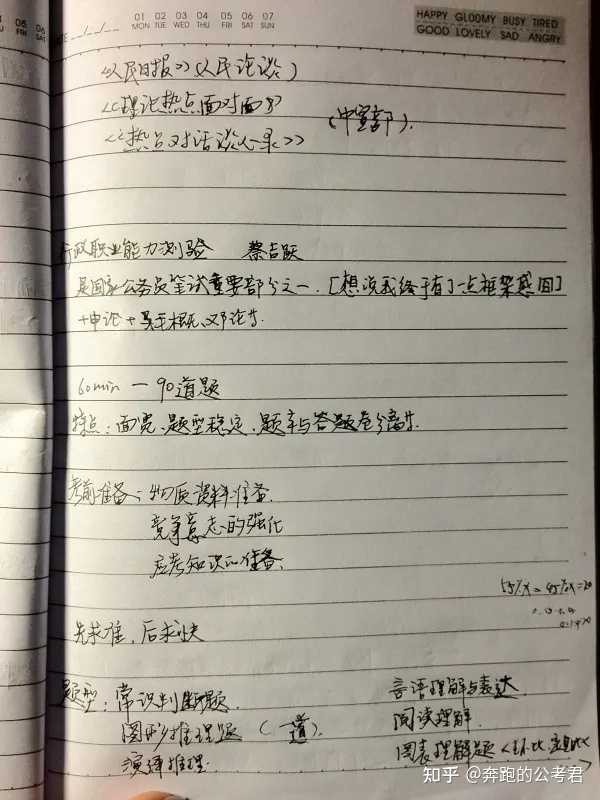 01 02 03 04 05 06 07
MON TUE WED THU FRI SAT SUN
HAPPY GLOOMY BUSY TIRED
GOOD LOVELY SAD ANGRY
DATE
《人民日报》《人民论谈》
《理论热点面对面》
(中宣部).
《热点对话谈心录》
行政职业能力测验 蔡吉跃
是国家公务员笔试重要部分之一.[想说我终于有了一点框架感 囙]
+申论+ 邓论
60min — 90道题
特点:面宽、题型稳定、题本与答题卷分离
考前准备:物质资料准备.
竞争意志的强化
应考知识的准备.
55%x = 45%x=20
先求准,后求快
题型:常识判断题.
图形推理题 (一道).
演绎推理.
言语理解与表达
阅读理解.
图表理解题 <环比
知乎 @奔跑的公考君